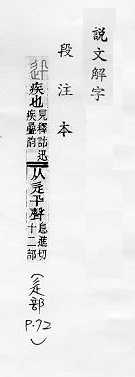 說文解字
段注本
迅 疾也 見釋詁迅疾疊韵 从辵卂聲 息進切十二部 (辵部 P.72)